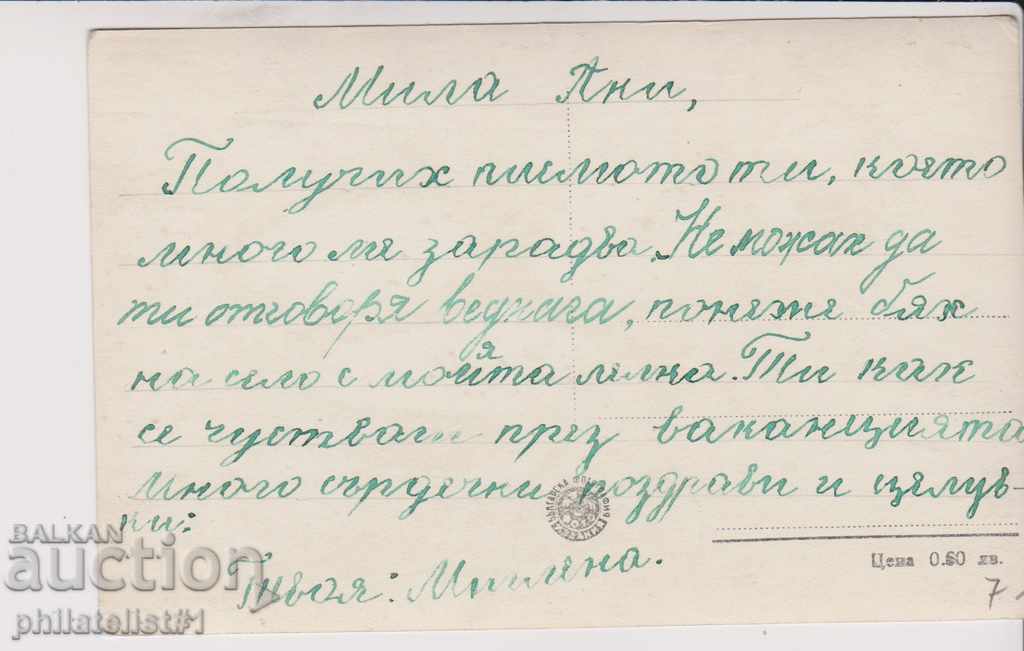 Мила Ани,
Получих писмото ти, което
много ме зарадва. Не можах да
ти отговоря веднага, понеже бях
на село с моята леля. Ти как
се чустваш през ваканцията
Много сърдечни поздрави и целув-
ки:
Твоя: Милена.
Цена 0.60 лв.
7
BALKAN
auction
philatelist#1